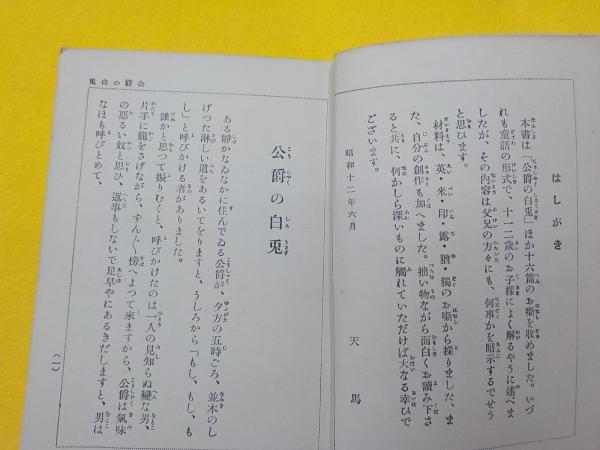 はしがき
本書は「公爵の白兎」ほか十六篇のお噺を收めました。いづ
れも童話の形式で、十一二歳のお子樣によく解るやうに述べま
したが、その内容は父兄の方々にも、何事かを暗示するでせう
と思ひます。
材料は、英・米・印・露・猶・獨のお噺から採りました、ま
た、自分の創作も加へました。拙い物ながら面白くお讀み下さ
ると共に、何かしら深いものに觸れていただけば大なる幸ひで
ございます。
昭和十二年六月
天馬
公爵の白兎
公爵の白兎
ある靜かなゐなかに住んでゐる公爵が、夕方の五時ごろ、並木のし
げつた淋しい道をあるいてをりますと、うしろから「もし、もし、も
し」と呼びかける者がありました。
誰かと思つて振りむくと、呼びかけたのは一人の見知らぬ變な男、
片手に籠をさげながら、ずん〳〵傍へよつて來ますから、公爵は氣味
の惡るい奴と思ひ、返事もしないで足早やにあるきだしますと、男は
なほも呼びとめて、
(一)